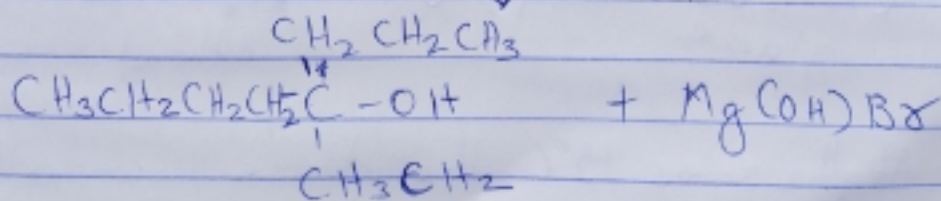 CH₂ CH₂ CH₃
CH₃CH₂CH₂CH₂C-OH + Mg(OH)Br
CH₃CH₂